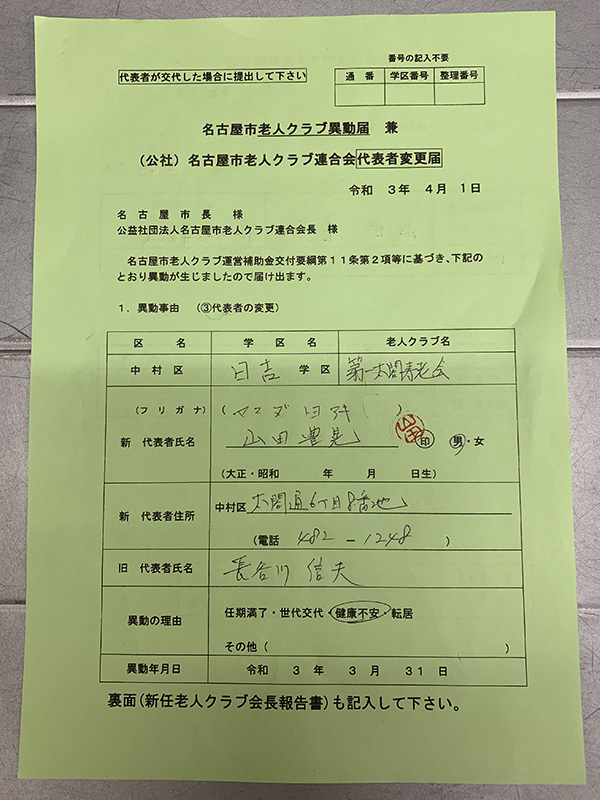 番号の記入不要
代表者が交代した場合に提出して下さい
通 番 学区番号 整理番号
名古屋市老人クラブ異動届 兼
(公社)名古屋市老人クラブ連合会代表者変更届
令和 3年 4月 1日
名 古 屋 市 長 様
公益社団法人名古屋市老人クラブ連合会長 様
名古屋市老人クラブ運営補助金交付要綱第11条第2項等に基づき、下記の
とおり異動が生じましたので届け出ます。
1.異動事由 (③代表者の変更)
区 名 学 区 名 老人クラブ名
中 村 区 日吉 学 区 第一太閤寿老会
(フ リ ガ ナ) ( )
新 代表者氏名 山田 豊晃 印 男・女
(大正・昭和 年 月 日生)
新 代表者住所 中村区 太閤通6丁目8番地
(電話 482-1248 )
旧 代表者氏名 長谷川 信夫
異動の理由 任期満了・世代交代・健康不安・転居
その他( )
異動年月日 令和 3 年 3 月 31 日
裏面(新任老人クラブ会長報告書)も記入して下さい。